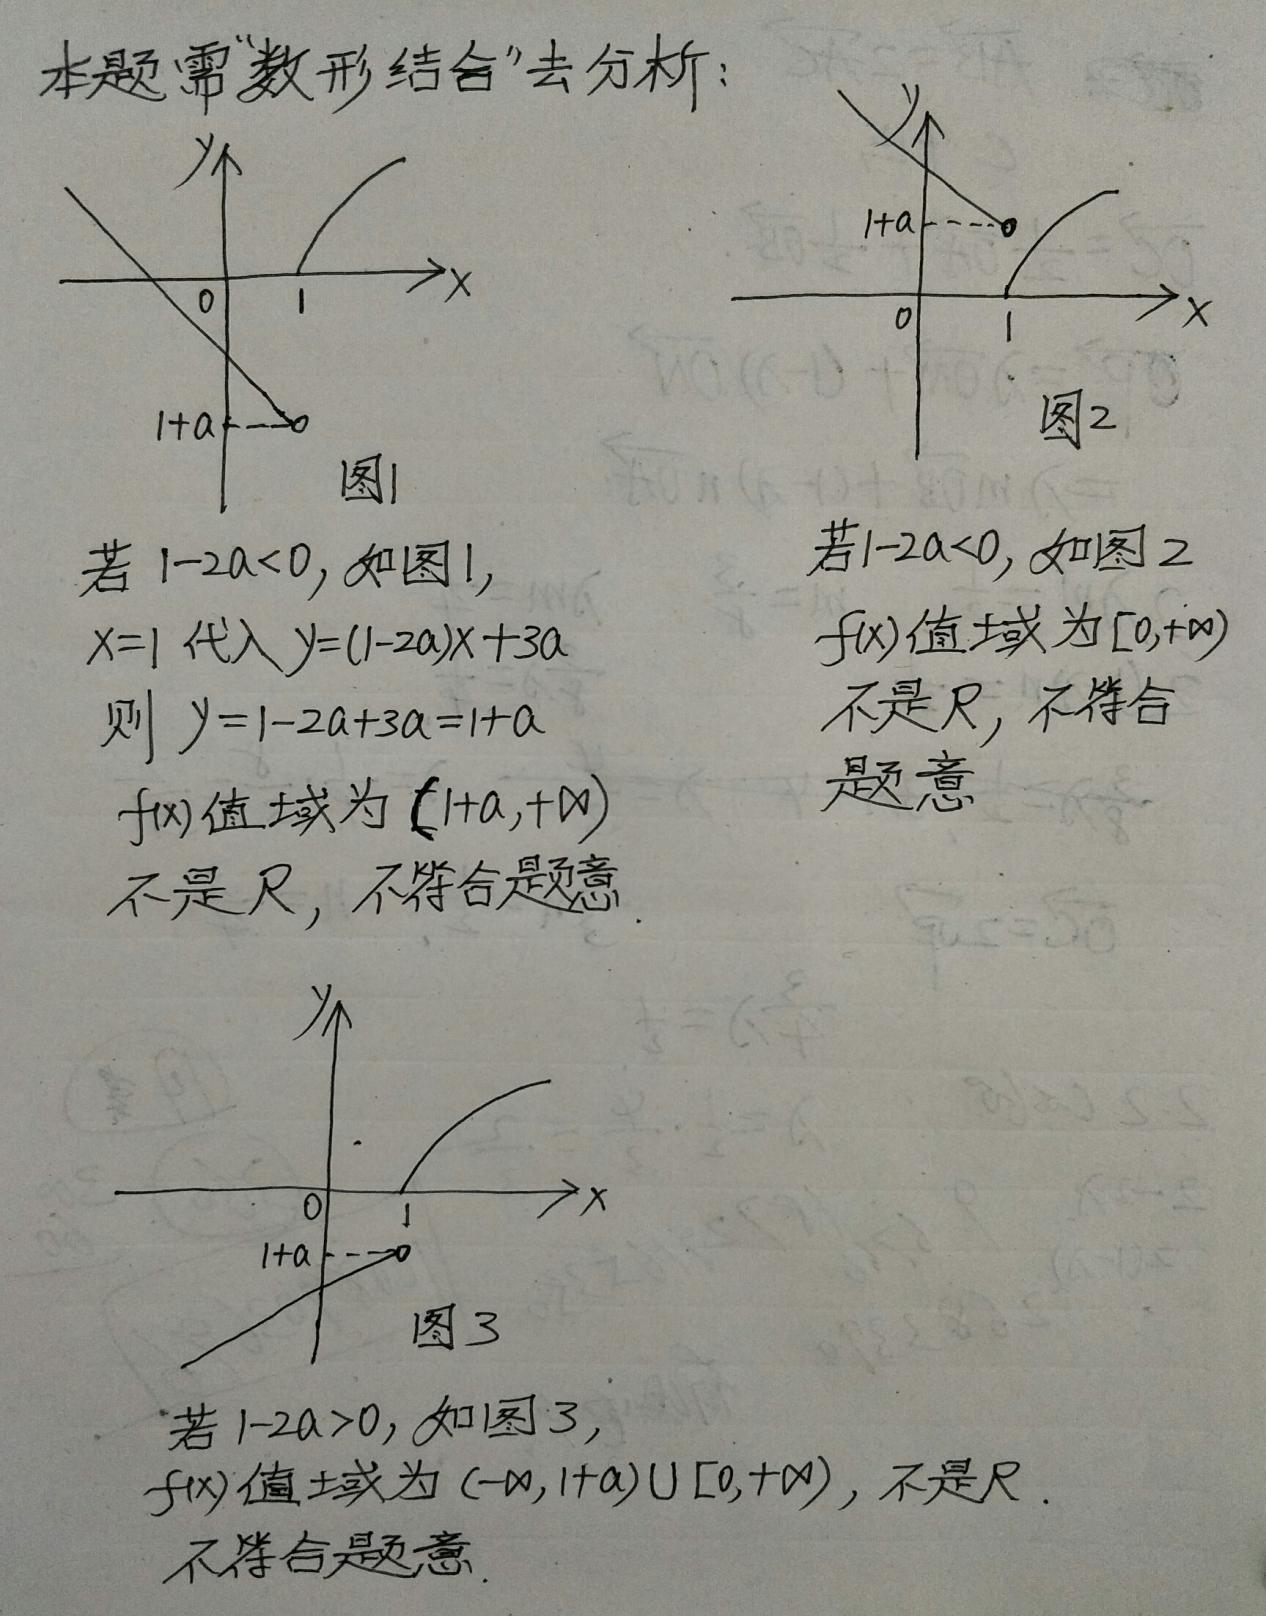 本题需“数形结合”去分析：
y
0
1
x
1+a
图1
y
1+a
0
1
x
图2
若 1-2a<0, 如图1,
x=1 代入 y=(1-2a)x+3a
则 y=1-2a+3a=1+a
f(x) 值域为 (1+a,+∞)
不是R, 不符合题意.
若1-2a<0, 如图2
f(x) 值域为[0,+∞)
不是R, 不符合
题意
y
0
1
x
1+a
图3
若 1-2a>0, 如图3,
f(x) 值域为 (-∞, 1+a)∪[0,+∞), 不是R.
不符合题意.